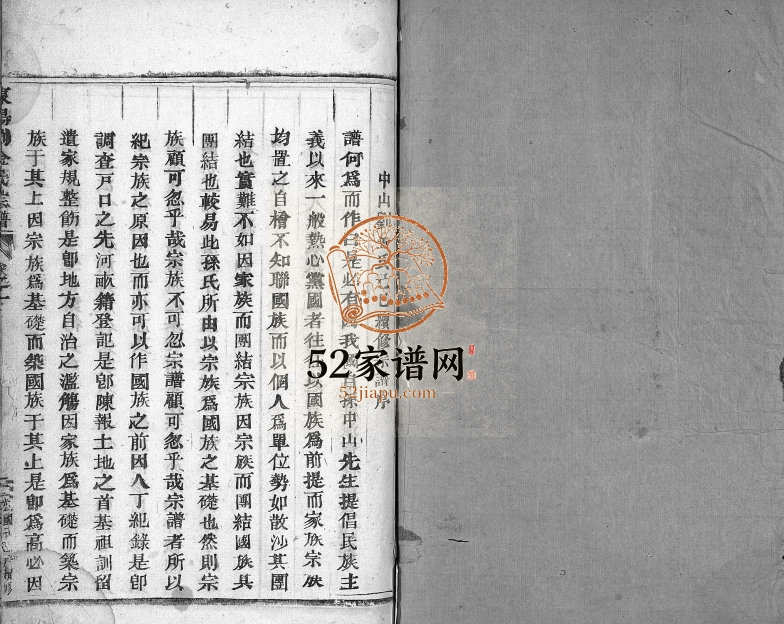 中山劉 氏己巳續修 譜序
譜何爲而作 曰是必有 因我國自孫中山先生提倡民族主
義以來一般熱心黨國者往往以國族爲前提而家族宗族
均置之自檜不知聯國族而以個人爲單位勢如散沙其團
結也實難不如因家族而團結宗族因宗族而團結國族其
團結也較易此孫氏所由以宗族爲國族之基礎也然則宗
族顧可忽乎哉宗族不可忽宗譜顧可忽乎哉宗譜者所以
紀宗族之原因也而亦可以作國族之前因人丁紀錄是卽
調查戸口之先河畝籍登記是卽陳報土地之首基祖訓留
遺家規整飭是卽地方自治之濫觴因家族爲基礎而築宗
族于其上因宗族爲基礎而築國族于其上是卽爲高必因
東陽 金氏宗譜
52家谱网
52jiapu.com